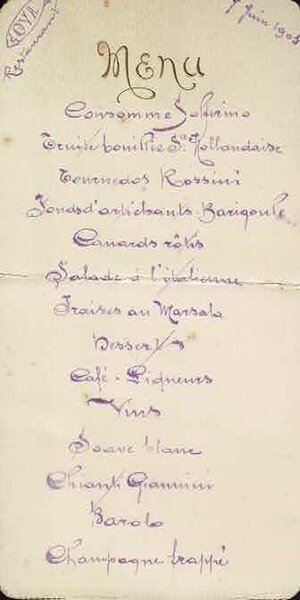 GOYA
Restaurant
7 Juin 1905
Menu
Consommé Solferino
Truite bouillie Sce Hollandaise
Tournedos Rossini
Fonds d'artichauts Barigoule
Canards rôtis
Salade à l'italienne
Fraises au Marsala
Desserts
Café - Liqueurs
Vins
Soave blanc
Chianti Giannini
Barolo
Champagne frappé